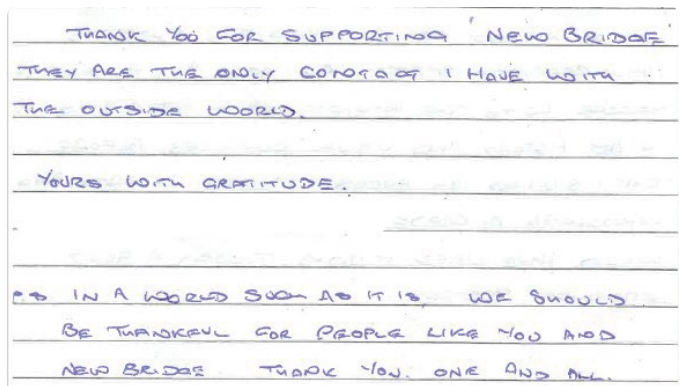 THANK YOU FOR SUPPORTING 'NEW BRIDGE'
THEY ARE THE ONLY CONTACT I HAVE WITH
THE OUTSIDE WORLD.
YOURS WITH GRATITUDE.
P.S IN A WORLD SUCH AS IT IS, WE SHOULD
BE THANKFUL FOR PEOPLE LIKE YOU AND
NEW BRIDGE THANK YOU. ONE AND ALL.